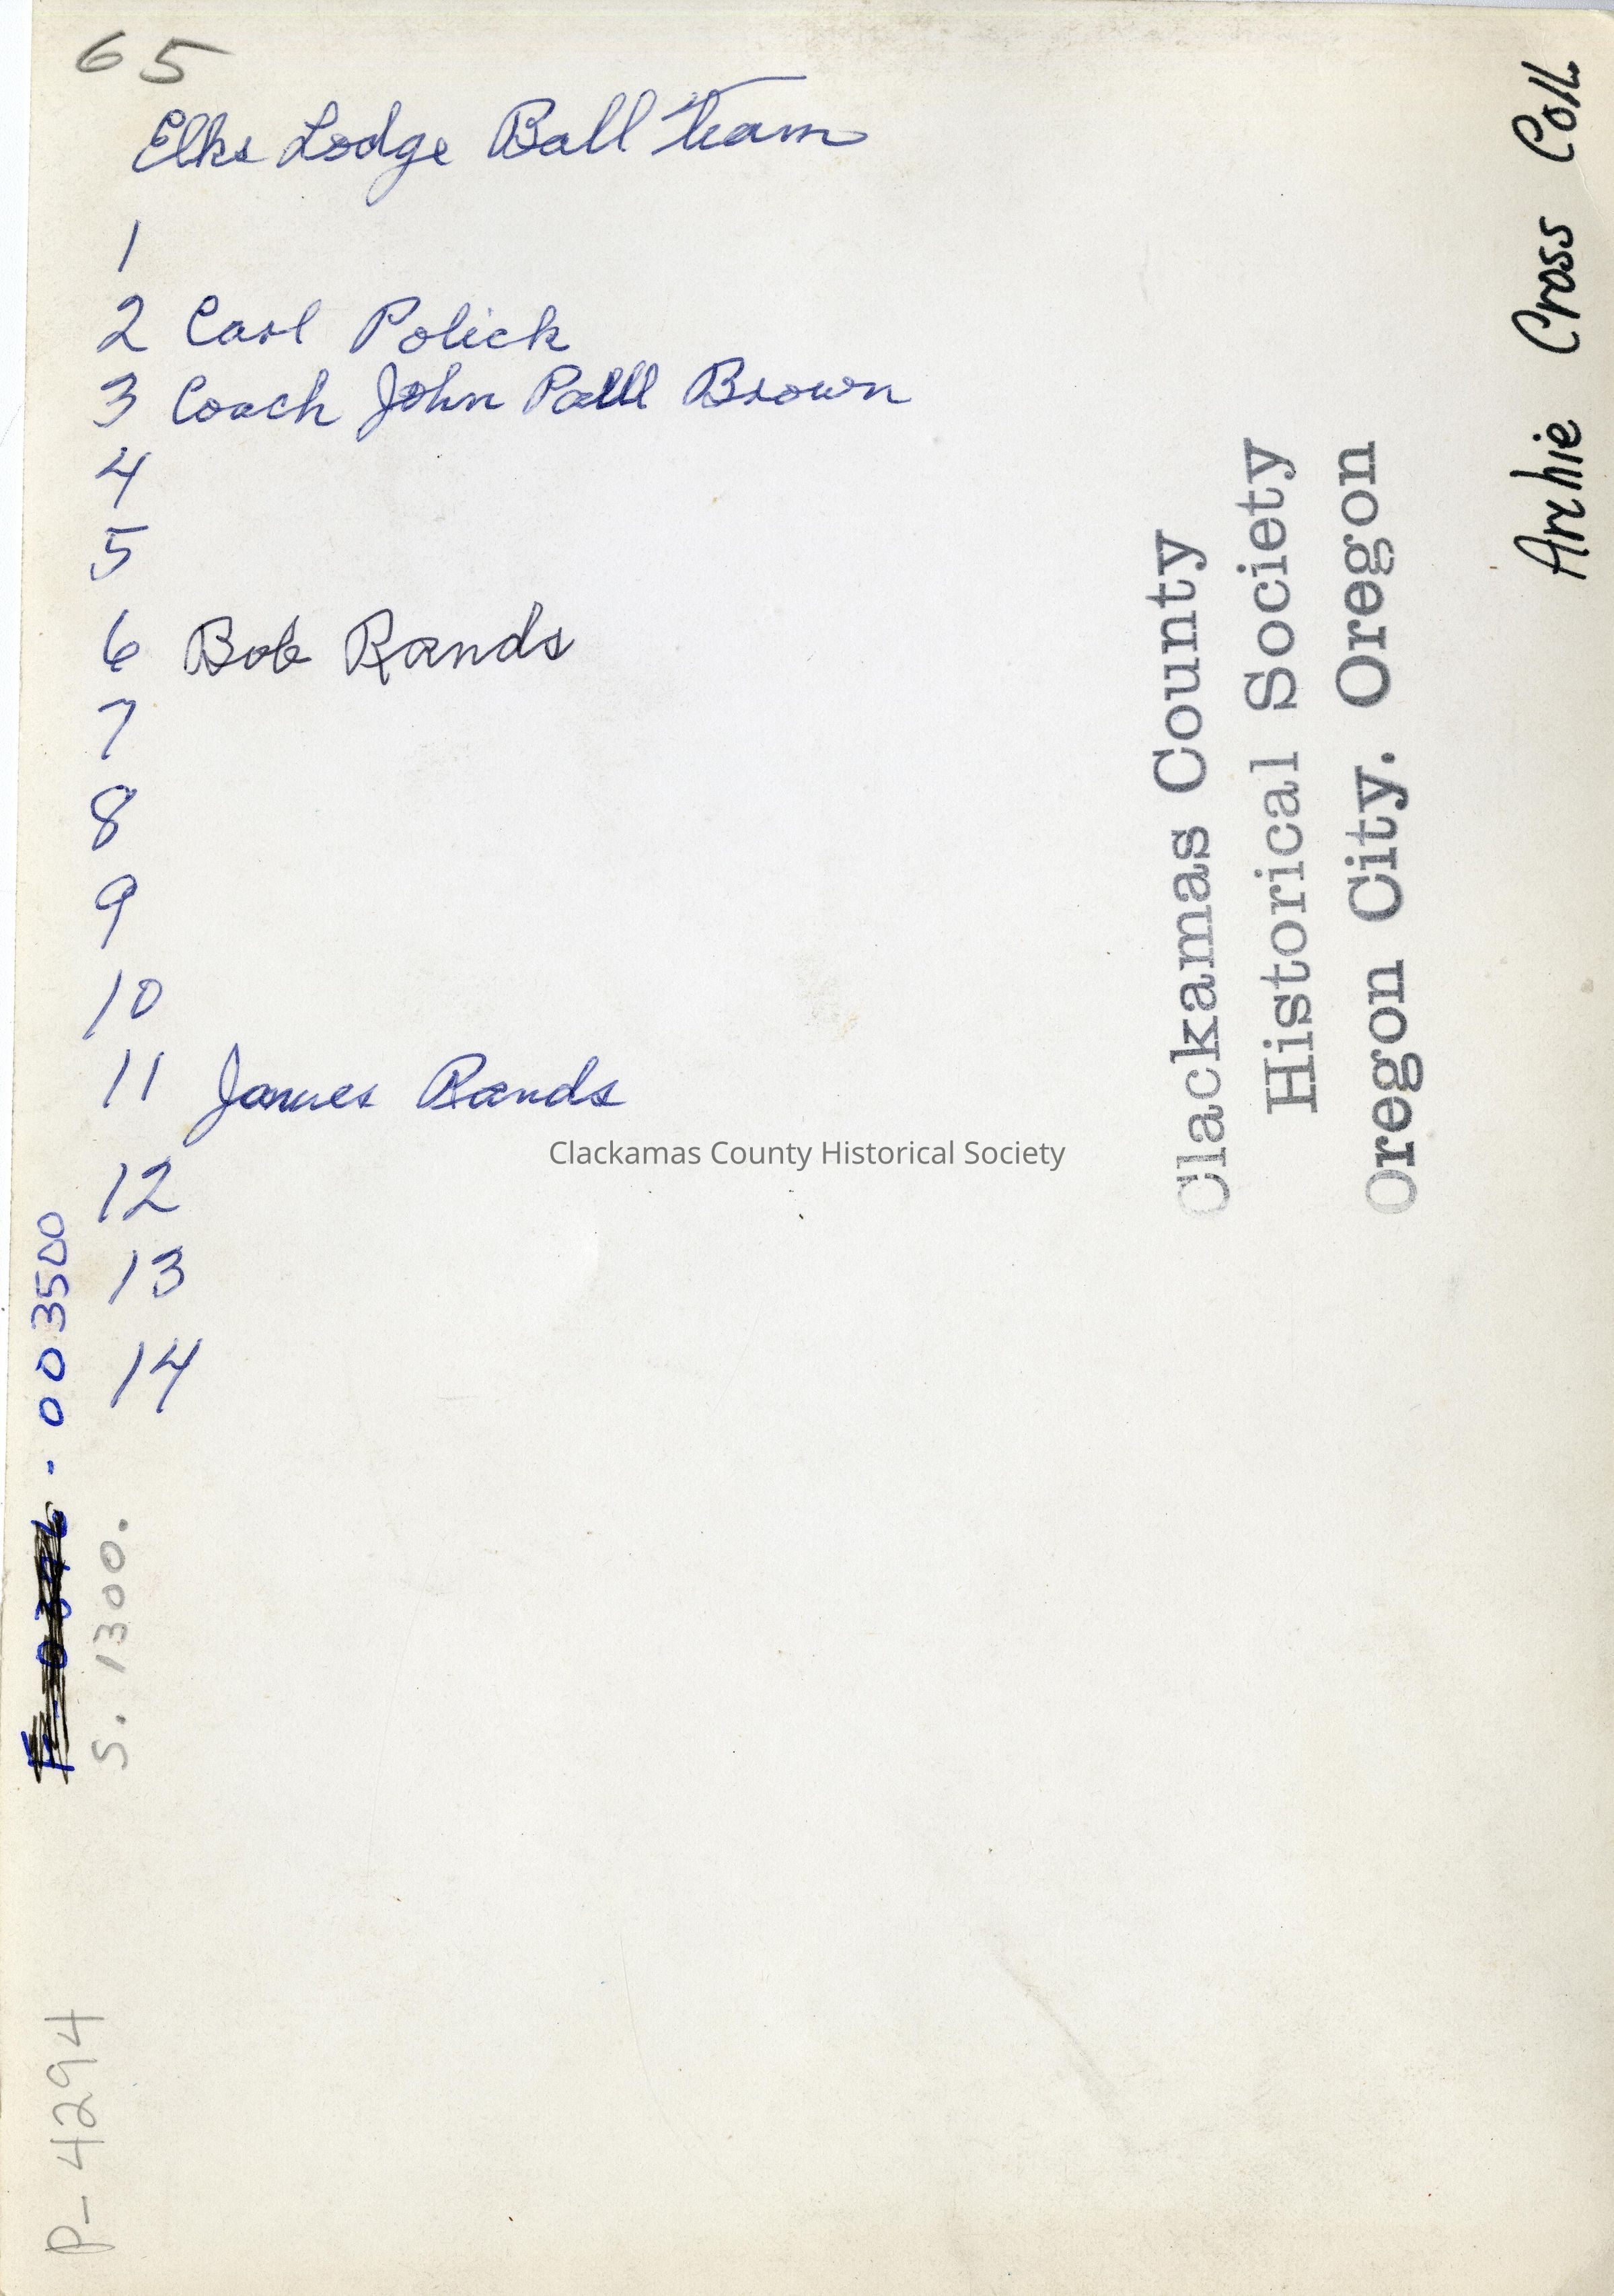 65
Elks Lodge Ball Team
1
2 Carl Polick
3 Coach John Paul Brown
4
5
6 Bob Rands
7
8
9
10
11 James Rands
12
13
14
Clackamas County Historical Society
Clackamas County
Historical Society
Oregon City. Oregon
Archie Cross Coll.
- 003500
S. 1300.
P-4294